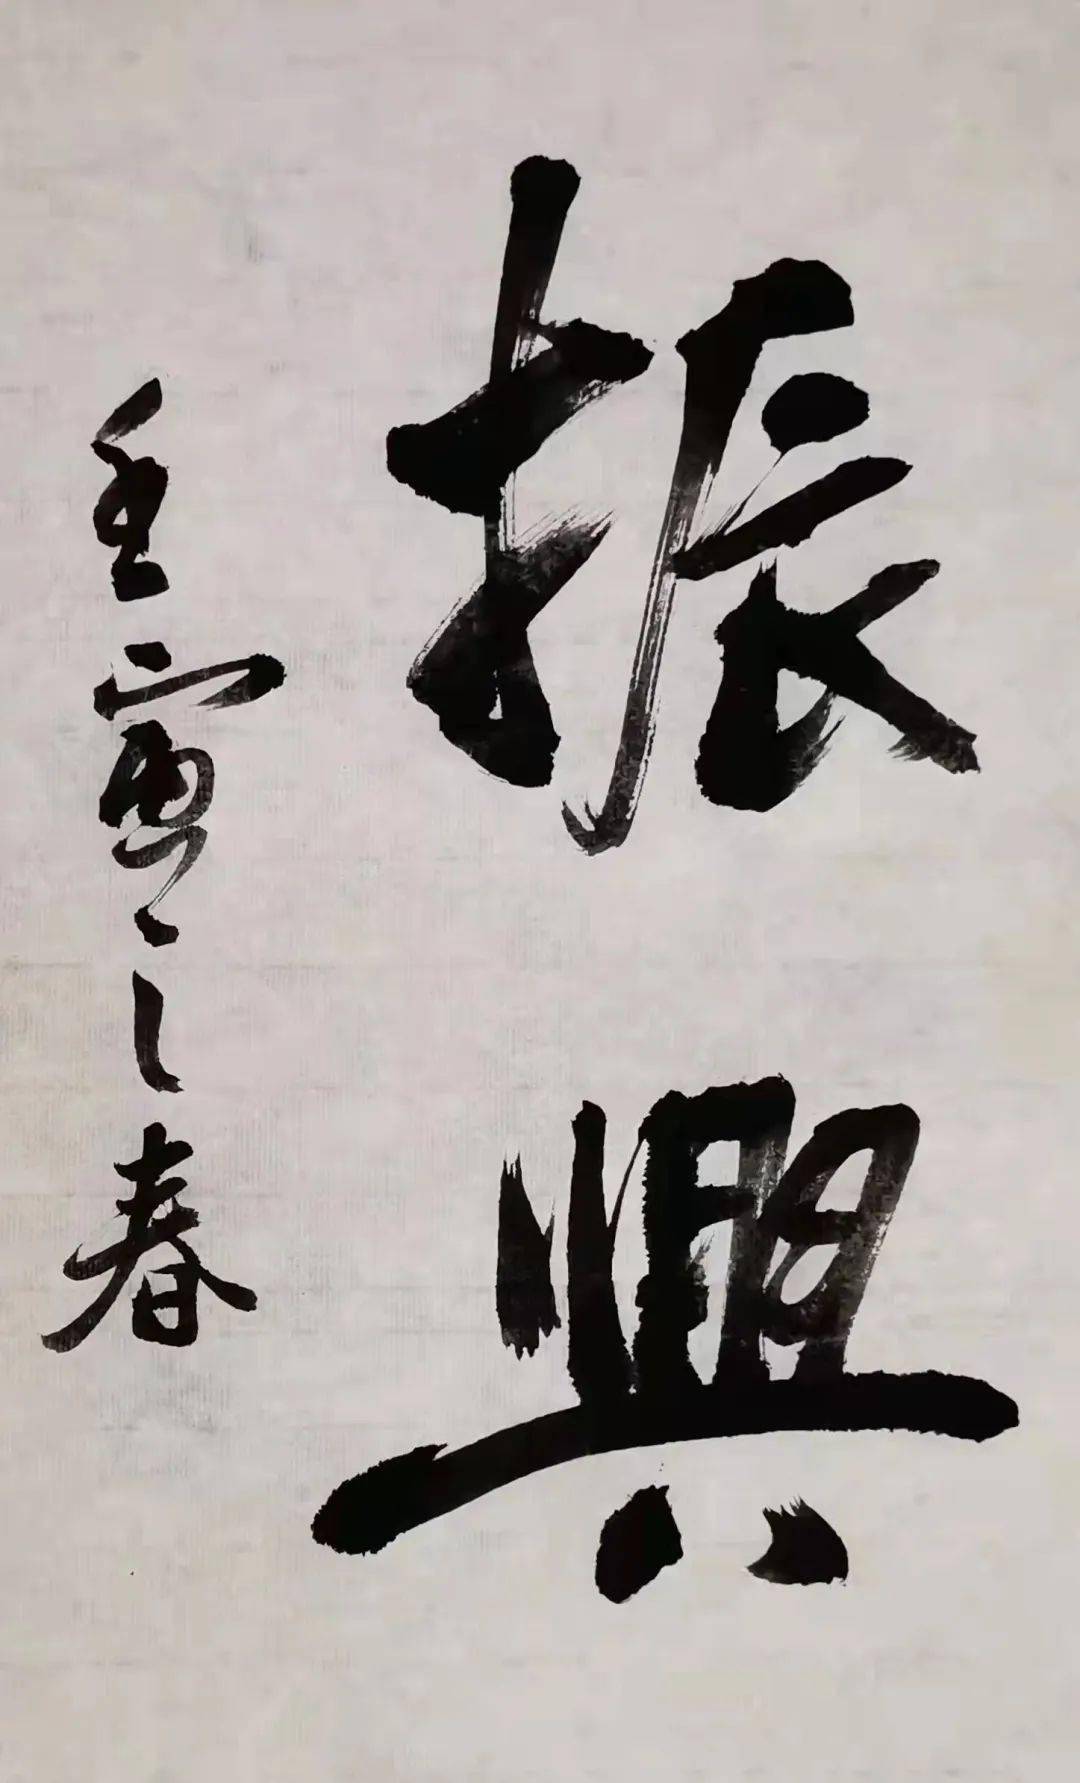 振興
壬寅之春